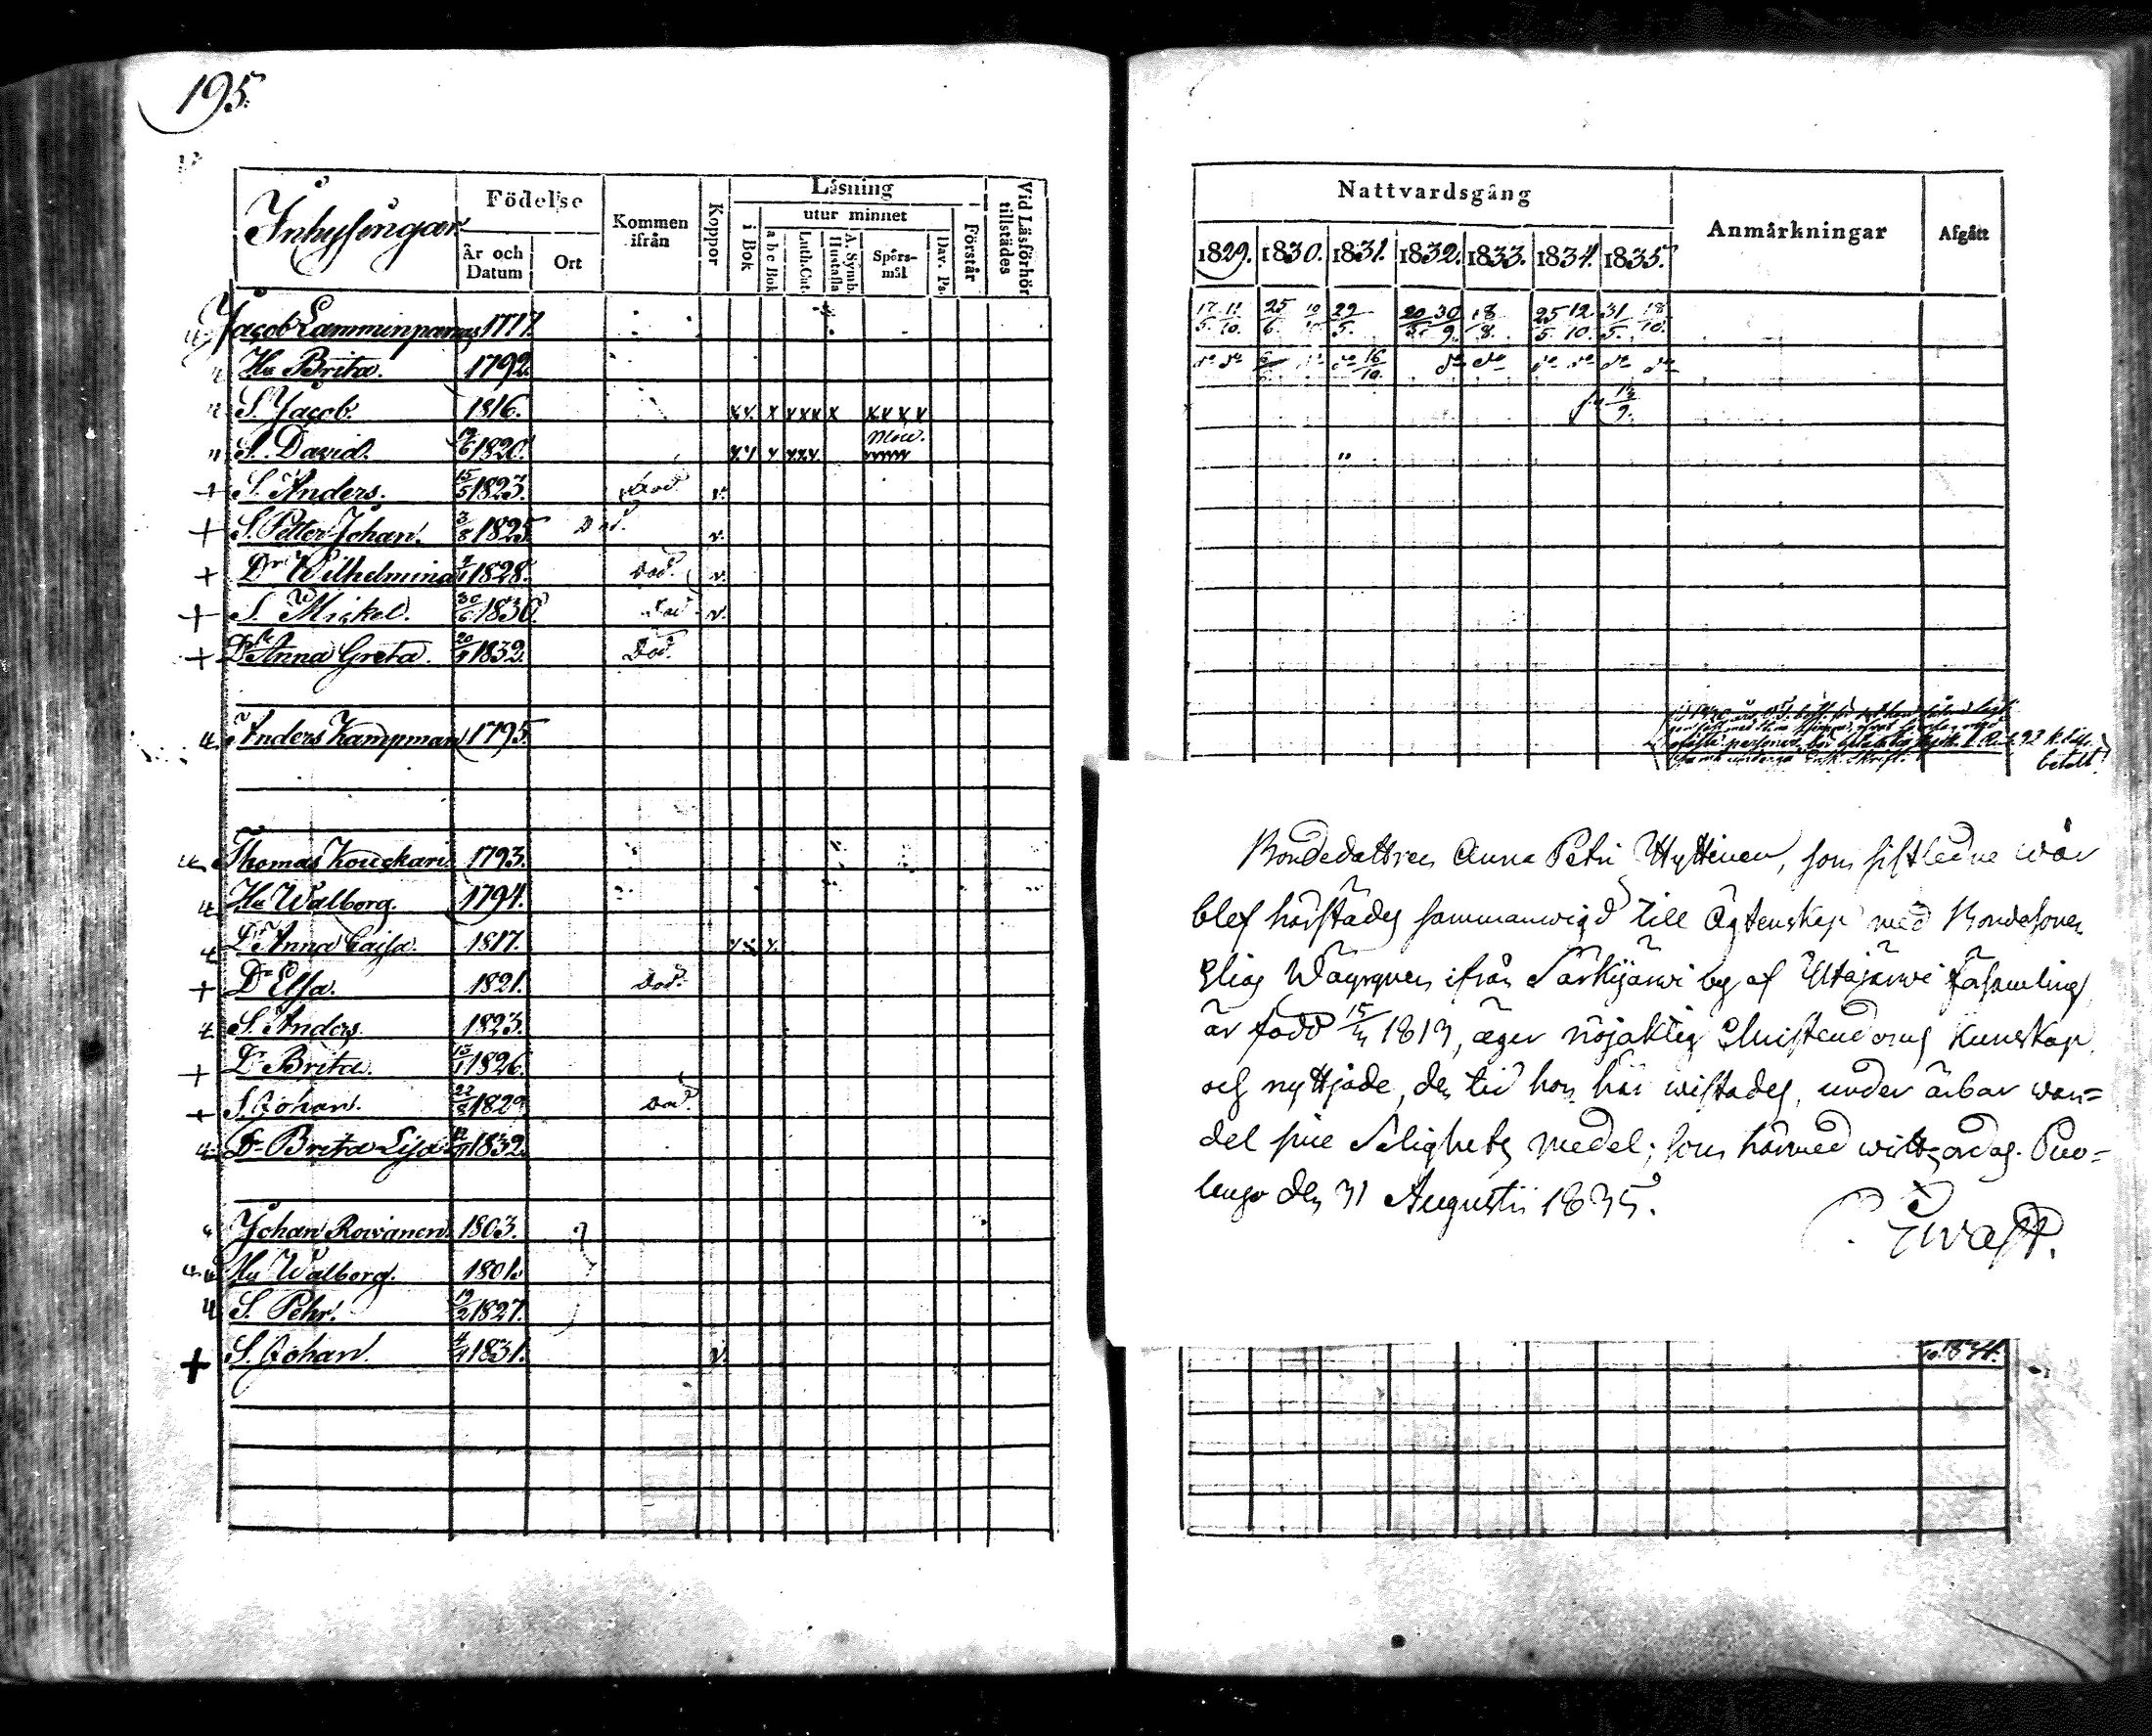 195.
Inhysingar
Födelse
År och Datum
Ort
Kommen ifrån
Koppor
Läsning
i Bok
utur minnet
a b c Bok
Luth. Cat.
A. Symb. Hustafla
Spörs-mål
Dav. Ps.
Förstår
Vid Läsförhör tillstädes
Jacob Lamminparras 1777.
Hu Brita. 1792.
S. Jacob. 1816. x x x x x x x x x x x
S. David. 1820.
S. Anders. 15/5 1823. Död. v.
S. Petter Johan. 3/8 1825 Död. v.
Dr Wilhelmina 1828. Död. v.
S. Mickel. 30/6 1830. v.
Dr Anna Greta. 20/9 1832. Död.
Anders Kampman 1795.
Thomas Kouckari 1793.
Hu Walborg. 1794.
Dr Anna Caisa. 1817.
Dr Elsa. 1821. Död.
S. Anders. 1823.
Dr Brita. 13/1 1826.
S. Johan. 22/8 1829 Död.
Dr Brita Lisa 1832.
Johan Rowanen 1803.
Hu Walborg. 1801.
S. Pehr. 19/2 1827.
S. Johan. 4/9 1831. v.
Nattvardsgång
Anmärkningar
Afgått
1829. 1830. 1831. 1832. 1833. 1834. 1835.
17/5 11/10. 25/6 29/5. 20/5 30/9. 18/8. 25/5 12/10. 31/5. 18/10.
do do do 16/10. do do do do do do
13/9.
92 k.
betalt.
Bondedattren Anna Petri Hyttinen, som sistledne wår
blef härstädes sammanwigd till Ägtenskap med Bondesonen
Elias Wäyrynen ifrån Särkijärwi by af Utajärwi församling
är född 15/ 1813, äger nöjaktig Christendoms Kunskap
och nyttjade, den tid hon här wistades, under ärbar wan=
del sine Salighets medel; som härmed wittsordas. Puo=
lango den 31 Augustii 1835.
Ewast.
1834.